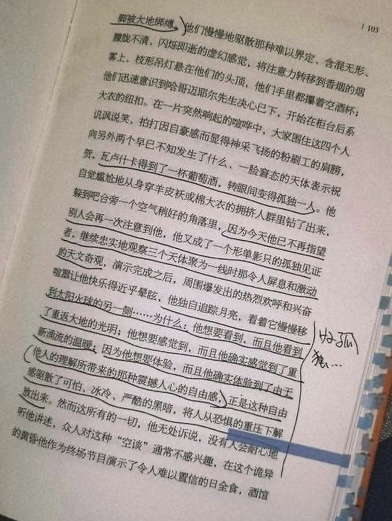 103
脚被大地绑缚。他们慢慢地驱散那种难以界定、含混无形、
朦胧不清、闪烁即逝的虚幻感觉，将注意力转移到香烟的烟
雾上，枝形吊灯悬在他们的头顶，他们手里都攥着空酒杯；
他们迅速意识到哈哥迈耶尔先生决心已下，开始在柜台后系
大衣的纽扣。在一片突然响起的喧哗中，大家围住这四个人
讥讽说笑，拍打因自豪感而显得神采飞扬的粉刷工的肩膀，
向另外两个早已不知发生了什么、一脸窘态的天体表示祝
贺，瓦卢什卡得到了一杯葡萄酒，转眼间变得孤独一人。他
自觉尴尬地从身穿羊皮袄或棉大衣的拥挤人群里钻了出来，
躲到吧台旁一个空气稍好的角落里，因为今天他已不再指望
别人会再一次注意到他，他又成了一个形单影只的孤独见证
者，继续忠实地观察三个天体聚为一线时那令人屏息和激动
的天文奇观，演示完成之后，周围爆发出的热烈欢呼和兴奋
喧嚣让他快乐得近乎晕眩，他独自追踪月亮，看着它慢慢移
到太阳火球的另一侧……为什么；他想要看到，而且他看到
了重返大地的光明；他想要感觉到，而且他确实感觉到了重
新涌流的温暖；因为他想要体验，而且他确实体验到了由于
他人的理解所带来的那种震撼人心的自由感，正是这种自由
感驱散了可怕、冰冷、严酷的黑暗，将人从恐惧的重压下解
放出来。然而这所有的一切，他无处诉说，没有人会耐心地
听他讲述，众人对这种“空谈”通常不感兴趣，在这个诡异
的黄昏他作为终场节目演示了令人难以置信的日全食，酒馆
好孤
独…